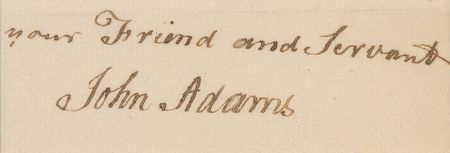 your Friend and Servant
John Adams